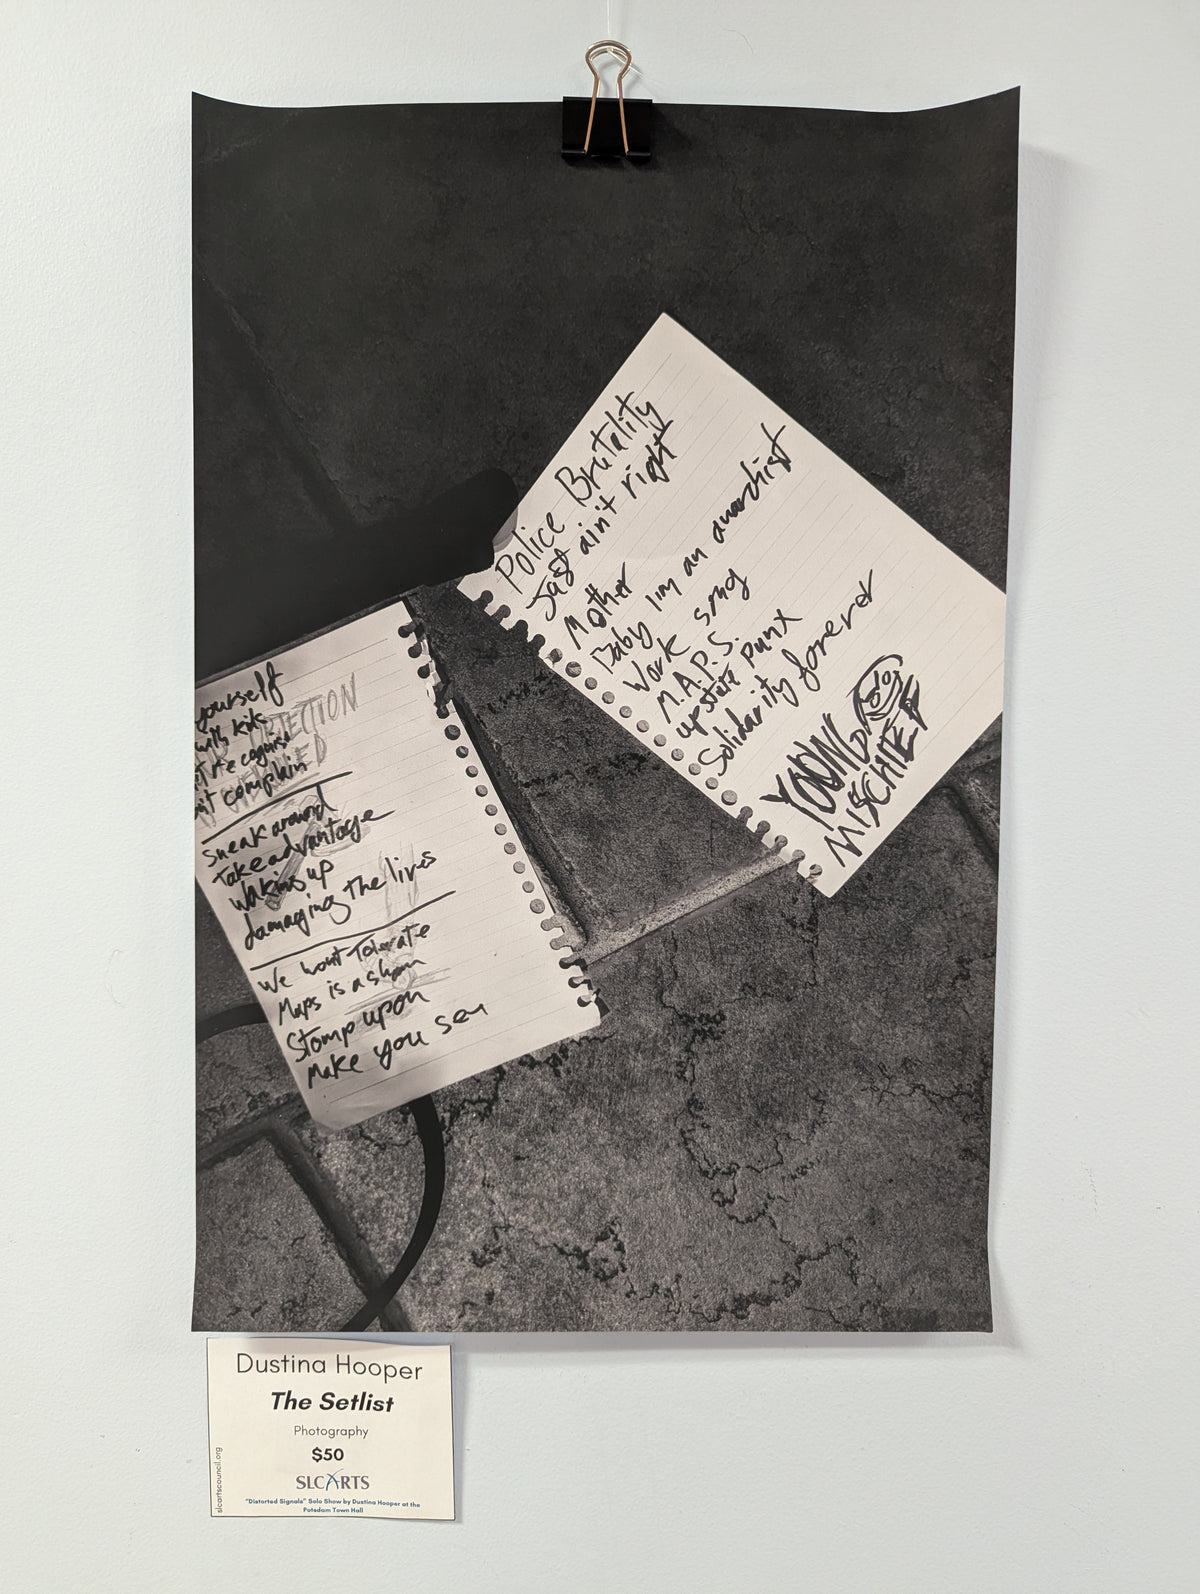 Police Brutality
Just ain't right
Mother
Baby I'm an anarchist
Work song
M.A.P.S.
upstate punx
Solidarity forever
YOUNG
MISCHIEF
yourself
with kids
recognise
complain
Sneak around
Take advantage
Waking up
damaging the lives
We wont Tolerate
Maps is a sham
Stomp upon
Make you see
Dustina Hooper
The Setlist
Photography
$50
SLCARTS
"Distorted Signals" Solo Show by Dustina Hooper at the
Potsdam Town Hall
slcartscouncil.org